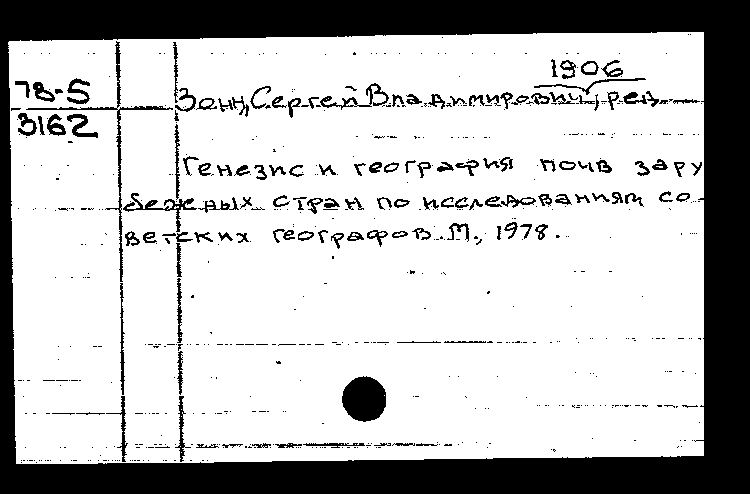 1906
78-5
3162
Зонн, Сергей Владимирович, ред.
Генезис и география почв зару
бежных стран по исследованиям со-
ветских географов. М., 1978.